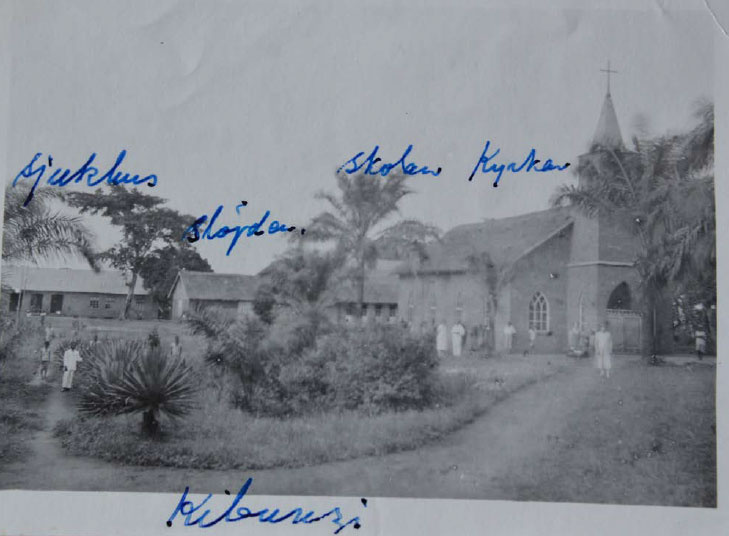 Sjukhus
Slöjden.
Skolan
Kyrkan
Kibunzi